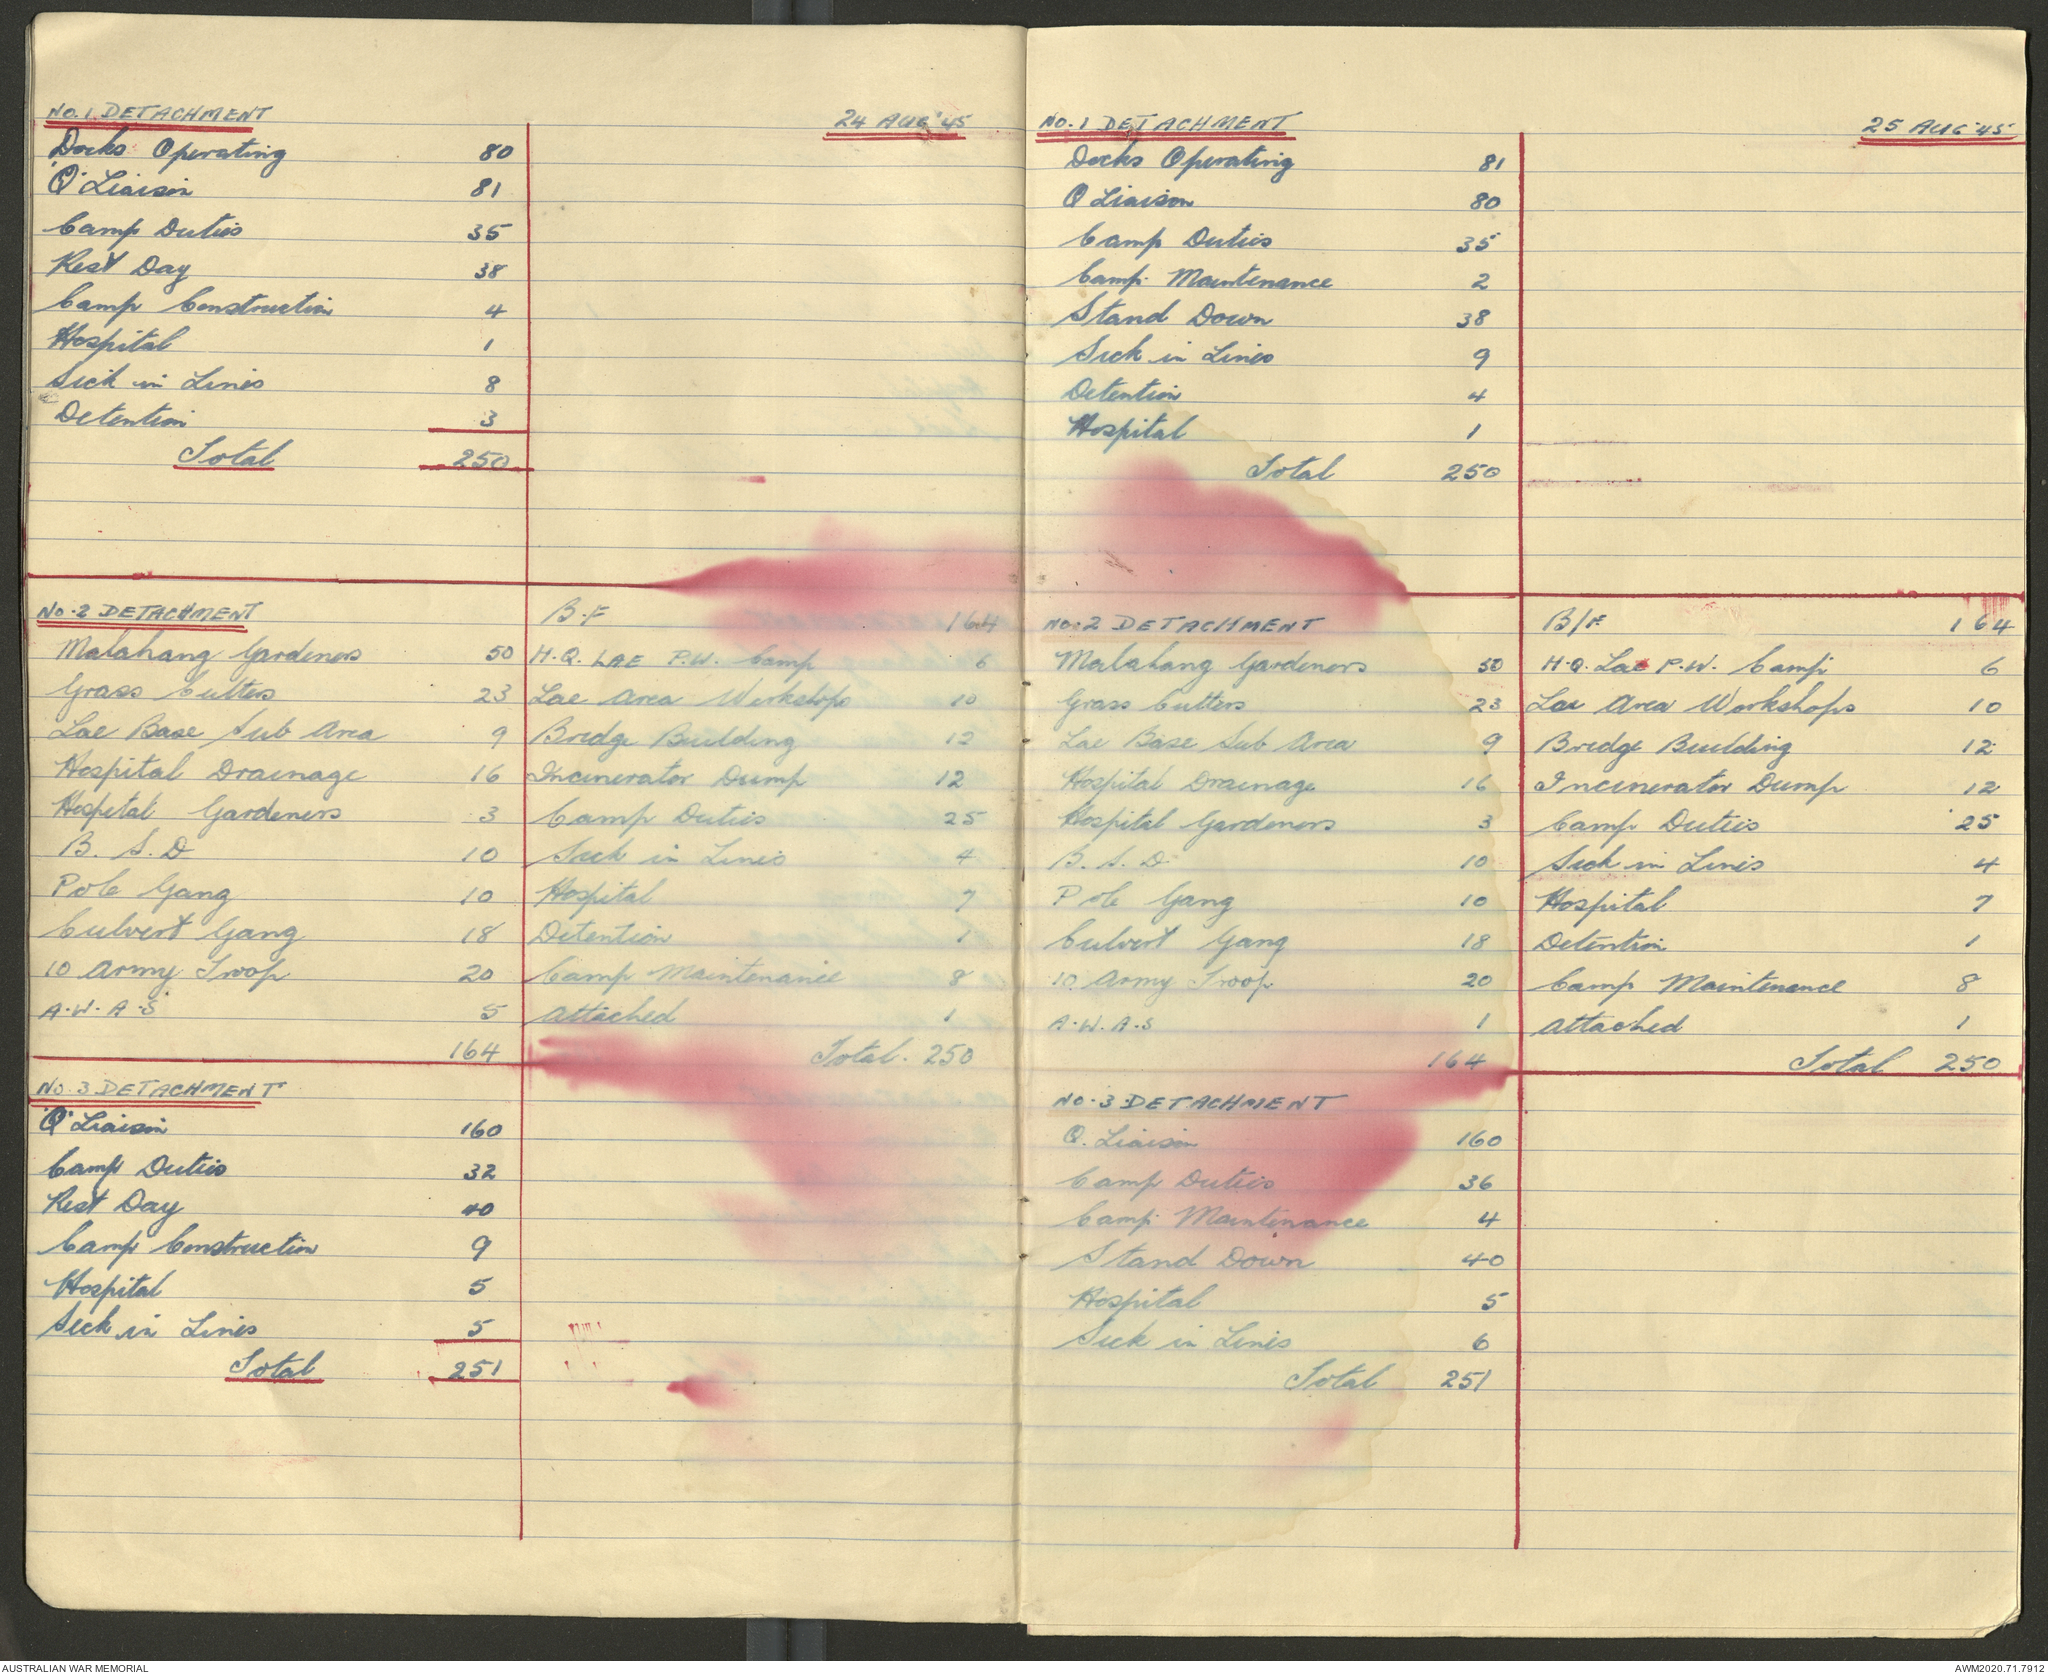 NO. 1 DETACHMENT 24 AUG '45
Docks Operating 80
'Q' Liaison 81
Camp Duties 35
Rest Day 38
Camp Construction 4
Hospital 1
Sick in Lines 8
Detention 3
Total 250
NO. 2 DETACHMENT
Malahang Gardeners 50
Grass Cutters 23
Lae Base Sub Area 9
Hospital Drainage 16
Hospital Gardeners 3
B. S. D 10
Pole Gang 10
Culvert Gang 18
10 Army Troop 20
A.W.A.S 5
164
B.F 164
H.Q. LAE P.W. Camp 6
Lae Area Workshops 10
Bredge Building 12
Incinerator Dump 12
Camp Duties 25
Sick in Lines 4
Hospital 7
Detention 1
Camp Maintenance 8
Attached 1
Total. 250
NO. 3 DETACHMENT
'Q' Liaison 160
Camp Duties 32
Rest Day 40
Camp Construction 9
Hospital 5
Sick in Lines 5
Total 251
NO. 1 DETACHMENT 25 AUG '45
Docks Operating 81
Q Liaison 80
Camp Duties 35
Camp Maintenance 2
Stand Down 38
Sick in Lines 9
Detention 4
Hospital 1
Total 250
NO. 2 DETACHMENT
Malahang Gardeners 50
Grass Cutters 23
Lae Base Sub Area 9
Hospital Drainage 16
Hospital Gardeners 3
B. S. D. 10
Pole Gang 10
Culvert Gang 18
10 Army Troop 20
A.W.A.S 1
164
B/F. 164
H.Q. Lae P.W. Camp 6
Lae Area Workshops 10
Bredge Building 12
Incinerator Dump 12
Camp Duties 25
Sick in Lines 4
Hospital 7
Detention 1
Camp Maintenance 8
Attached 1
Total 250
NO. 3 DETACHMENT
Q. Liaison 160
Camp Duties 36
Camp Maintenance 4
Stand Down 40
Hospital 5
Sick in Lines 6
Total 251
AUSTRALIAN WAR MEMORIAL
AWM2020.71.7912